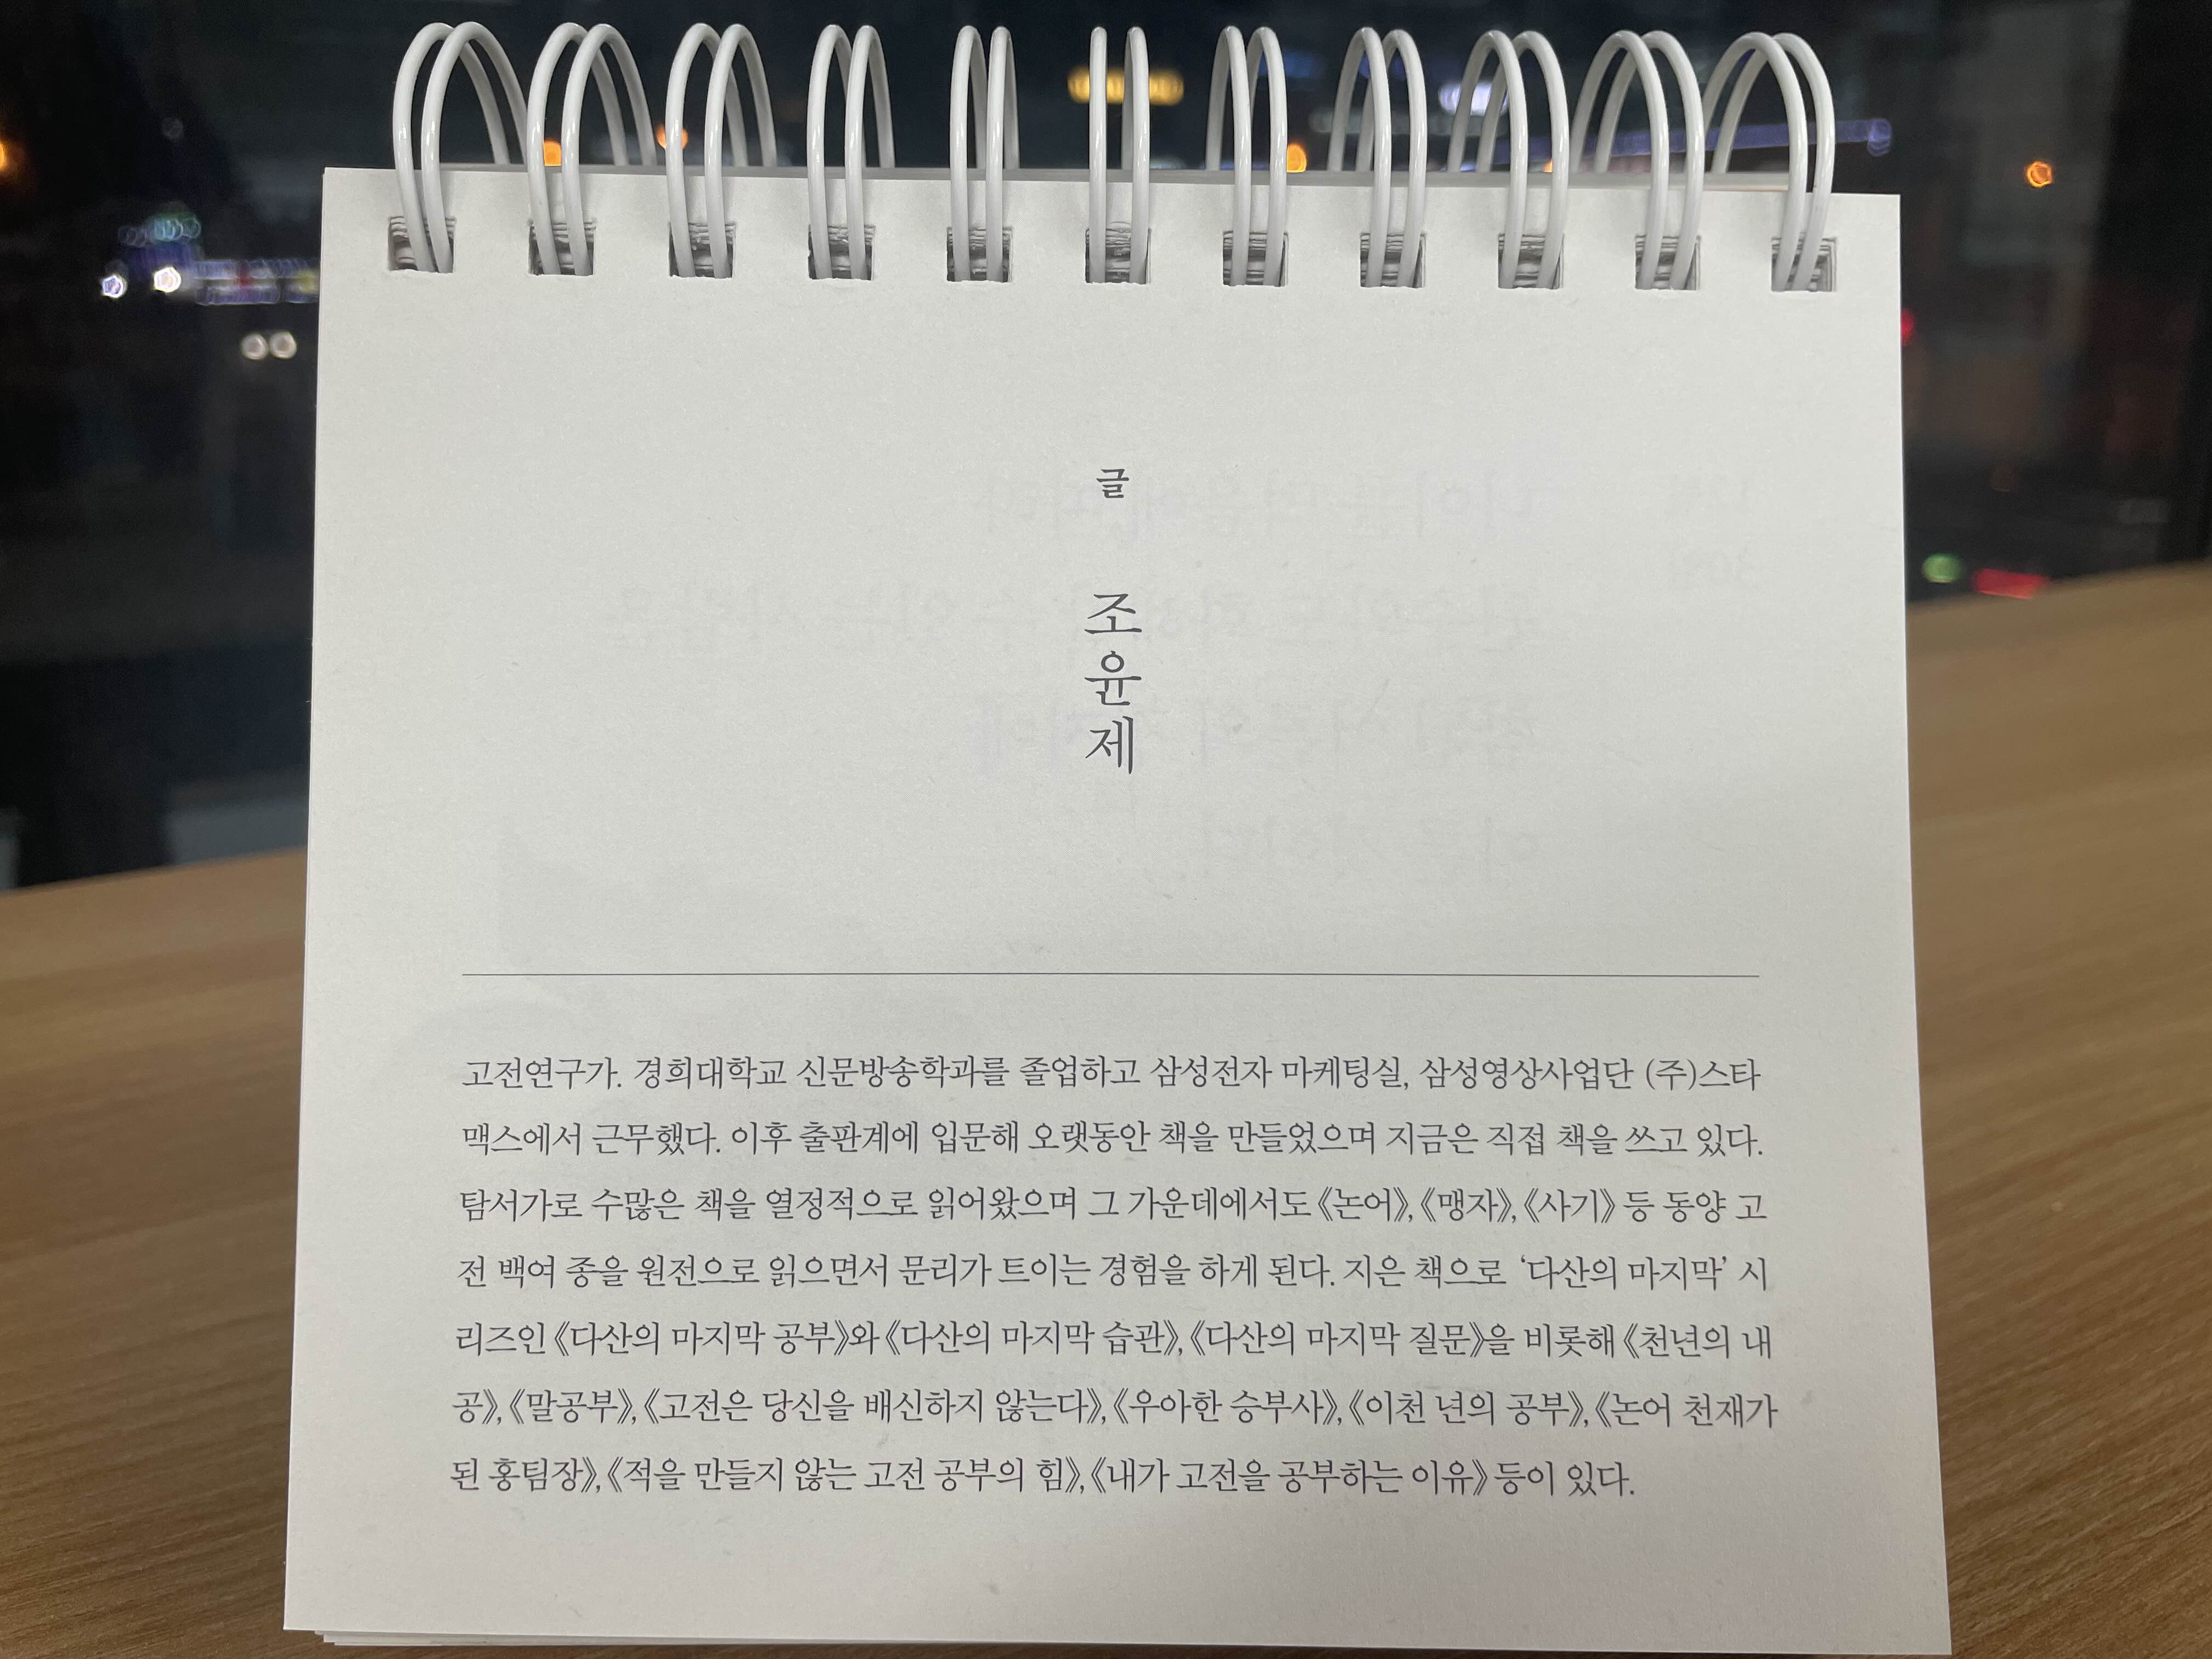 글
조윤제
고전연구가. 경희대학교 신문방송학과를 졸업하고 삼성전자 마케팅실, 삼성영상사업단 (주)스타
맥스에서 근무했다. 이후 출판계에 입문해 오랫동안 책을 만들었으며 지금은 직접 책을 쓰고 있다.
탐서가로 수많은 책을 열정적으로 읽어왔으며 그 가운데에서도 《논어》, 《맹자》, 《사기》 등 동양 고
전 백여 종을 원전으로 읽으면서 문리가 트이는 경험을 하게 된다. 지은 책으로 ‘다산의 마지막’ 시
리즈인 《다산의 마지막 공부》와 《다산의 마지막 습관》, 《다산의 마지막 질문》을 비롯해 《천년의 내
공》, 《말공부》, 《고전은 당신을 배신하지 않는다》, 《우아한 승부사》, 《이천 년의 공부》, 《논어 천재가
된 홍팀장》, 《적을 만들지 않는 고전 공부의 힘》, 《내가 고전을 공부하는 이유》 등이 있다.